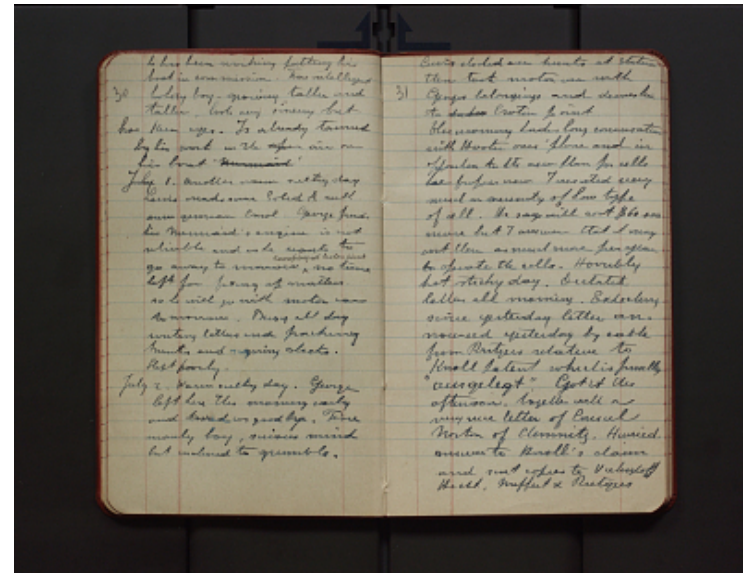 he has been working putting his
boat in commission. Has
boy - growing taller and
taller. Looks very sinewy but
has keen eyes. Is already tanned
by his work in the open air on
his boat "Mermaid"
July 1. Another warm sultry day
George finds
his Mermaid's engine is not
reliable and as he wants to
go away to morrow, no time
left for fixing up matters
so he will go with motor car
to morrow. Busy all day
writing letters and packing
trunks and signing checks.
Slept poorly.
July 2. Warm sultry day. George
left here this morning early
and kissed us good bye. Fine
manly boy, serious mind
but inclined to grumble.
30
31
trunks at station
then took motor car with
George's belongings and drove
to Croton point
This morning had a long conversation
with Hooker over 'phone and in
new plan for cells
he proposes now. I insisted very
much on necessity of low type
of cell. He says will cost $60
more but I answer that I may
cost then as much more per year
to operate the cells. Horribly
hot sticky day. Dictated
letters all morning.
since yesterday letter an-
nounced yesterday by cable
from Rütgers relative to
Knoll patent which is finally
"ausgelegt". Got it this
afternoon, together with a
very nice letter of Consul
Norton of Chemnitz. Hurried
answer to Knoll's claim
and sent copies to
Hecht, & Rütgers